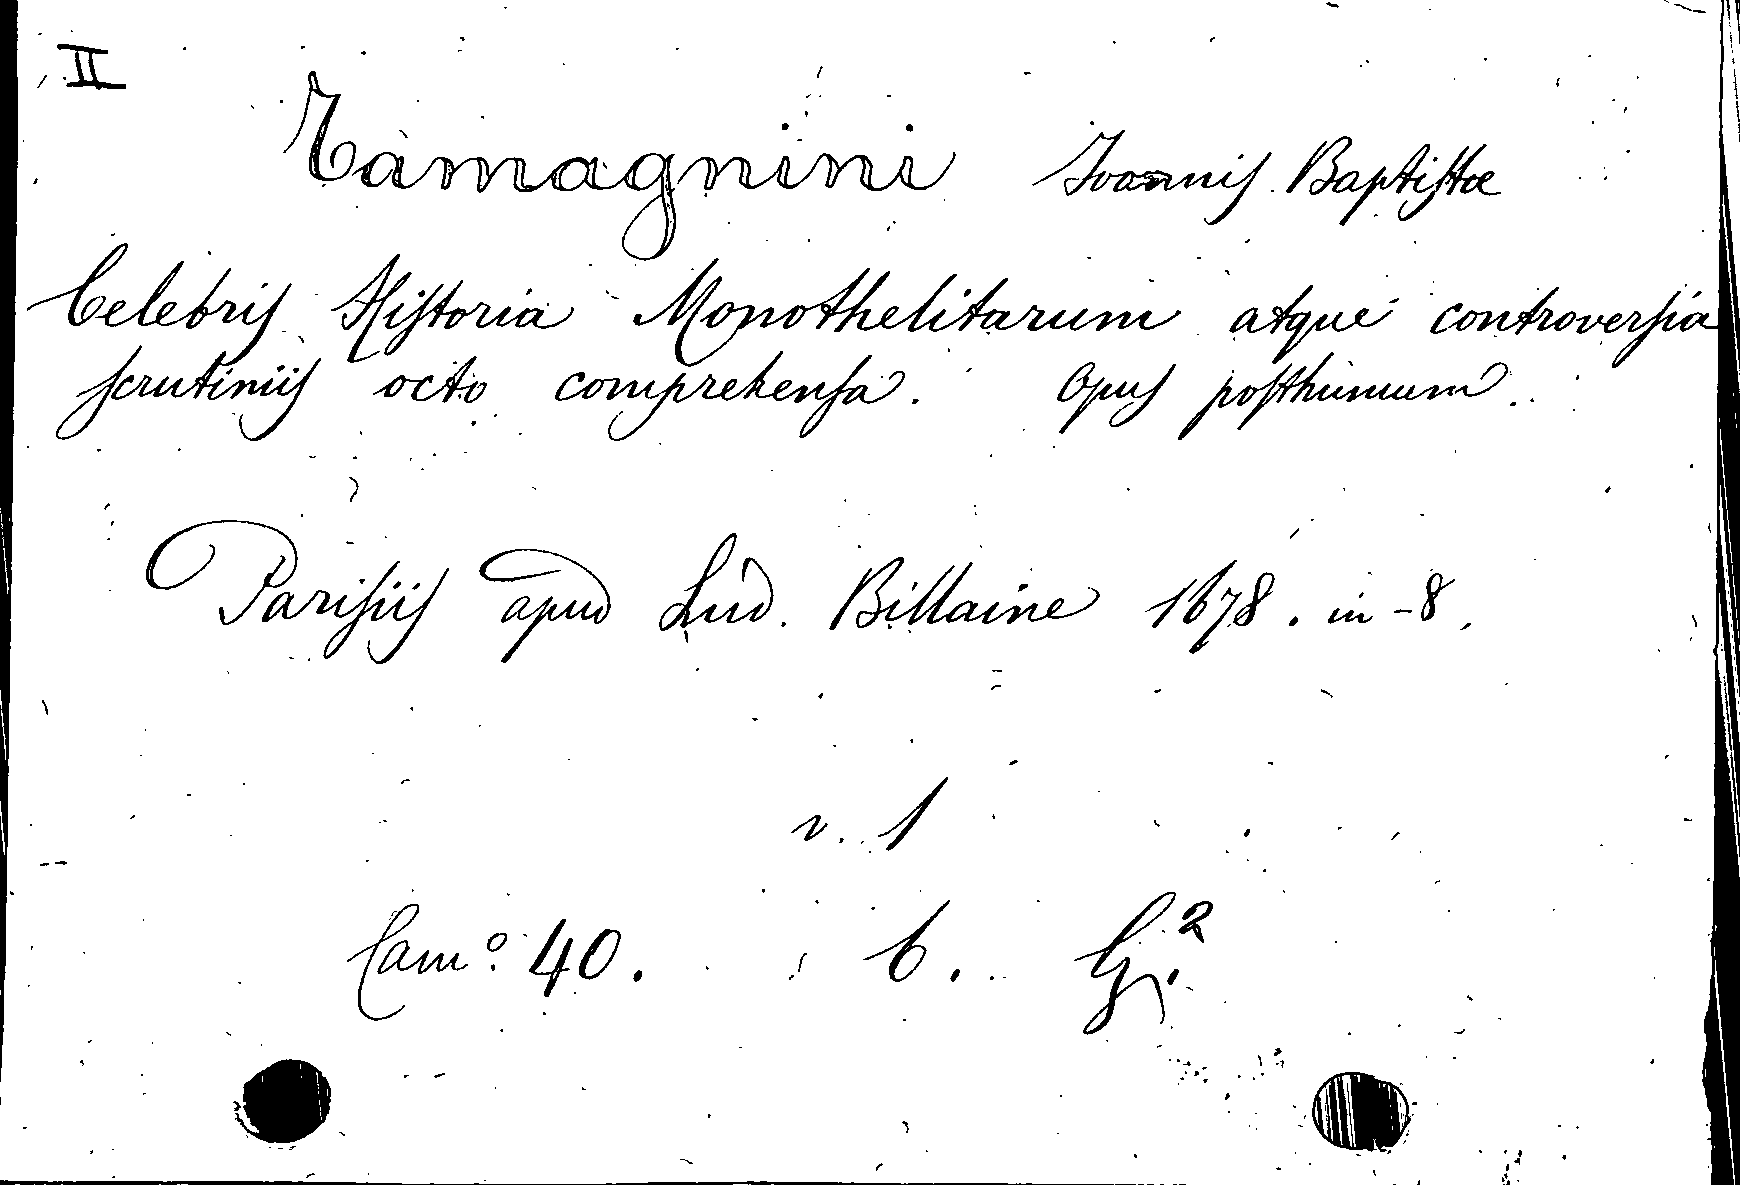 II
Tamagnini Ioannis Baptistæ
Celebris Historia Monothelitarum atque controversia
scrutiniis octo comprehensa. Opus posthumum.
Parisiis apud Lud. Billaine 1678. in-8.
v. 1
Cam.º 40. 6. G.²